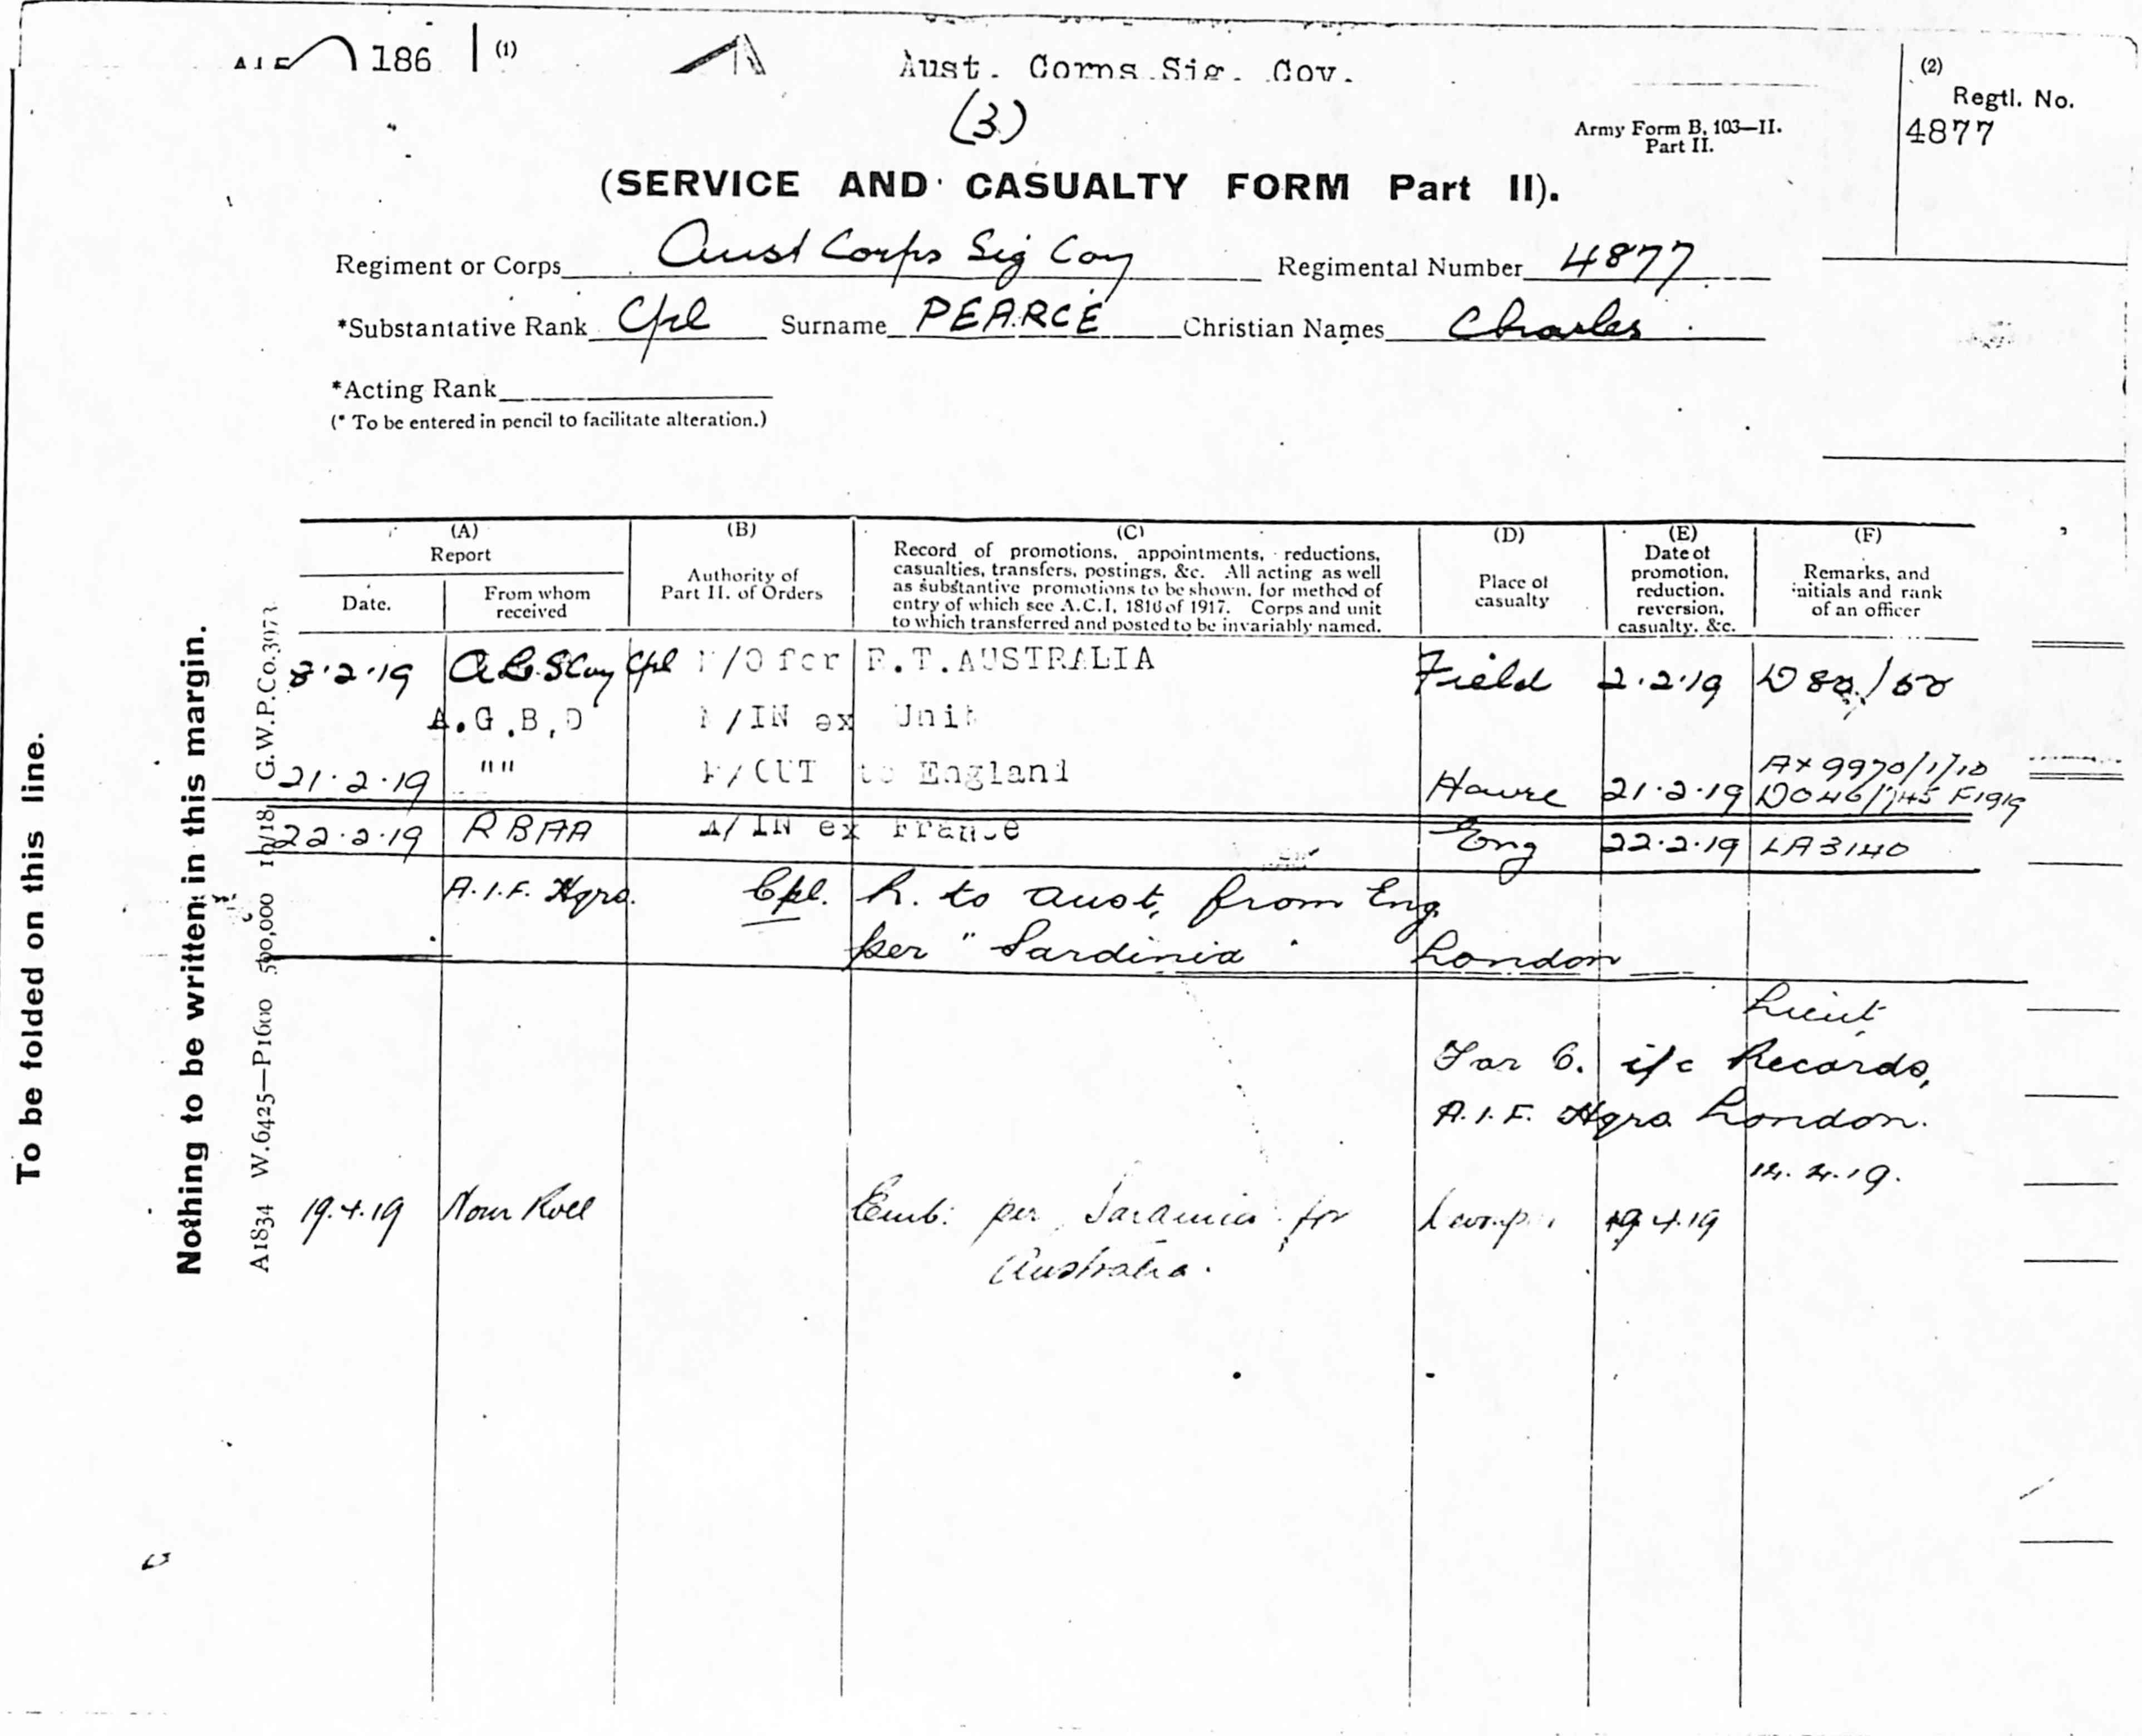 186 (1)
Aust. Corps Sig. Coy.
(3)
(2)
Regtl. No.
4877
Army Form B, 103—II.
Part II.
(SERVICE AND CASUALTY FORM Part II).
Regiment or Corps Aust Corps Sig Coy Regimental Number 4877
*Substantative Rank Cpl Surname PEARCE Christian Names Charles
*Acting Rank
(* To be entered in pencil to facilitate alteration.)
To be folded on this line.
Nothing to be written in this margin.
A1834 W.6425—P1600 500,000 10/18 G.W.P.Co.3973
(A) (B) (C) (D) (E) (F)
Report
Date.
From whom
received
Authority of
Part II. of Orders
Record of promotions, appointments, reductions,
casualties, transfers, postings, &c. All acting as well
as substantive promotions to be shown, for method of
entry of which see A.C.I. 1816 of 1917. Corps and unit
to which transferred and posted to be invariably named.
Place of
casualty
Date of
promotion,
reduction,
reversion,
casualty, &c.
Remarks, and
initials and rank
of an officer
8.2.19 Cpl M/O for R.T.AUSTRALIA Field 2.2.19
A.G.B.D M/IN ex Unit
21.2.19 "" M/OUT to England Havre 21.2.19
22.2.19 M/IN ex France Eng 22.2.19 LA3140
A.I.F. Hqrs. Cpl. R. to Aust, from Eng
per "Sardinia" London
Lieut
For O. i/c Records,
A.I.F. Hqrs London.
19.4.19 Nom Roll Emb: per Sardinia for 19.4.19
Australia.